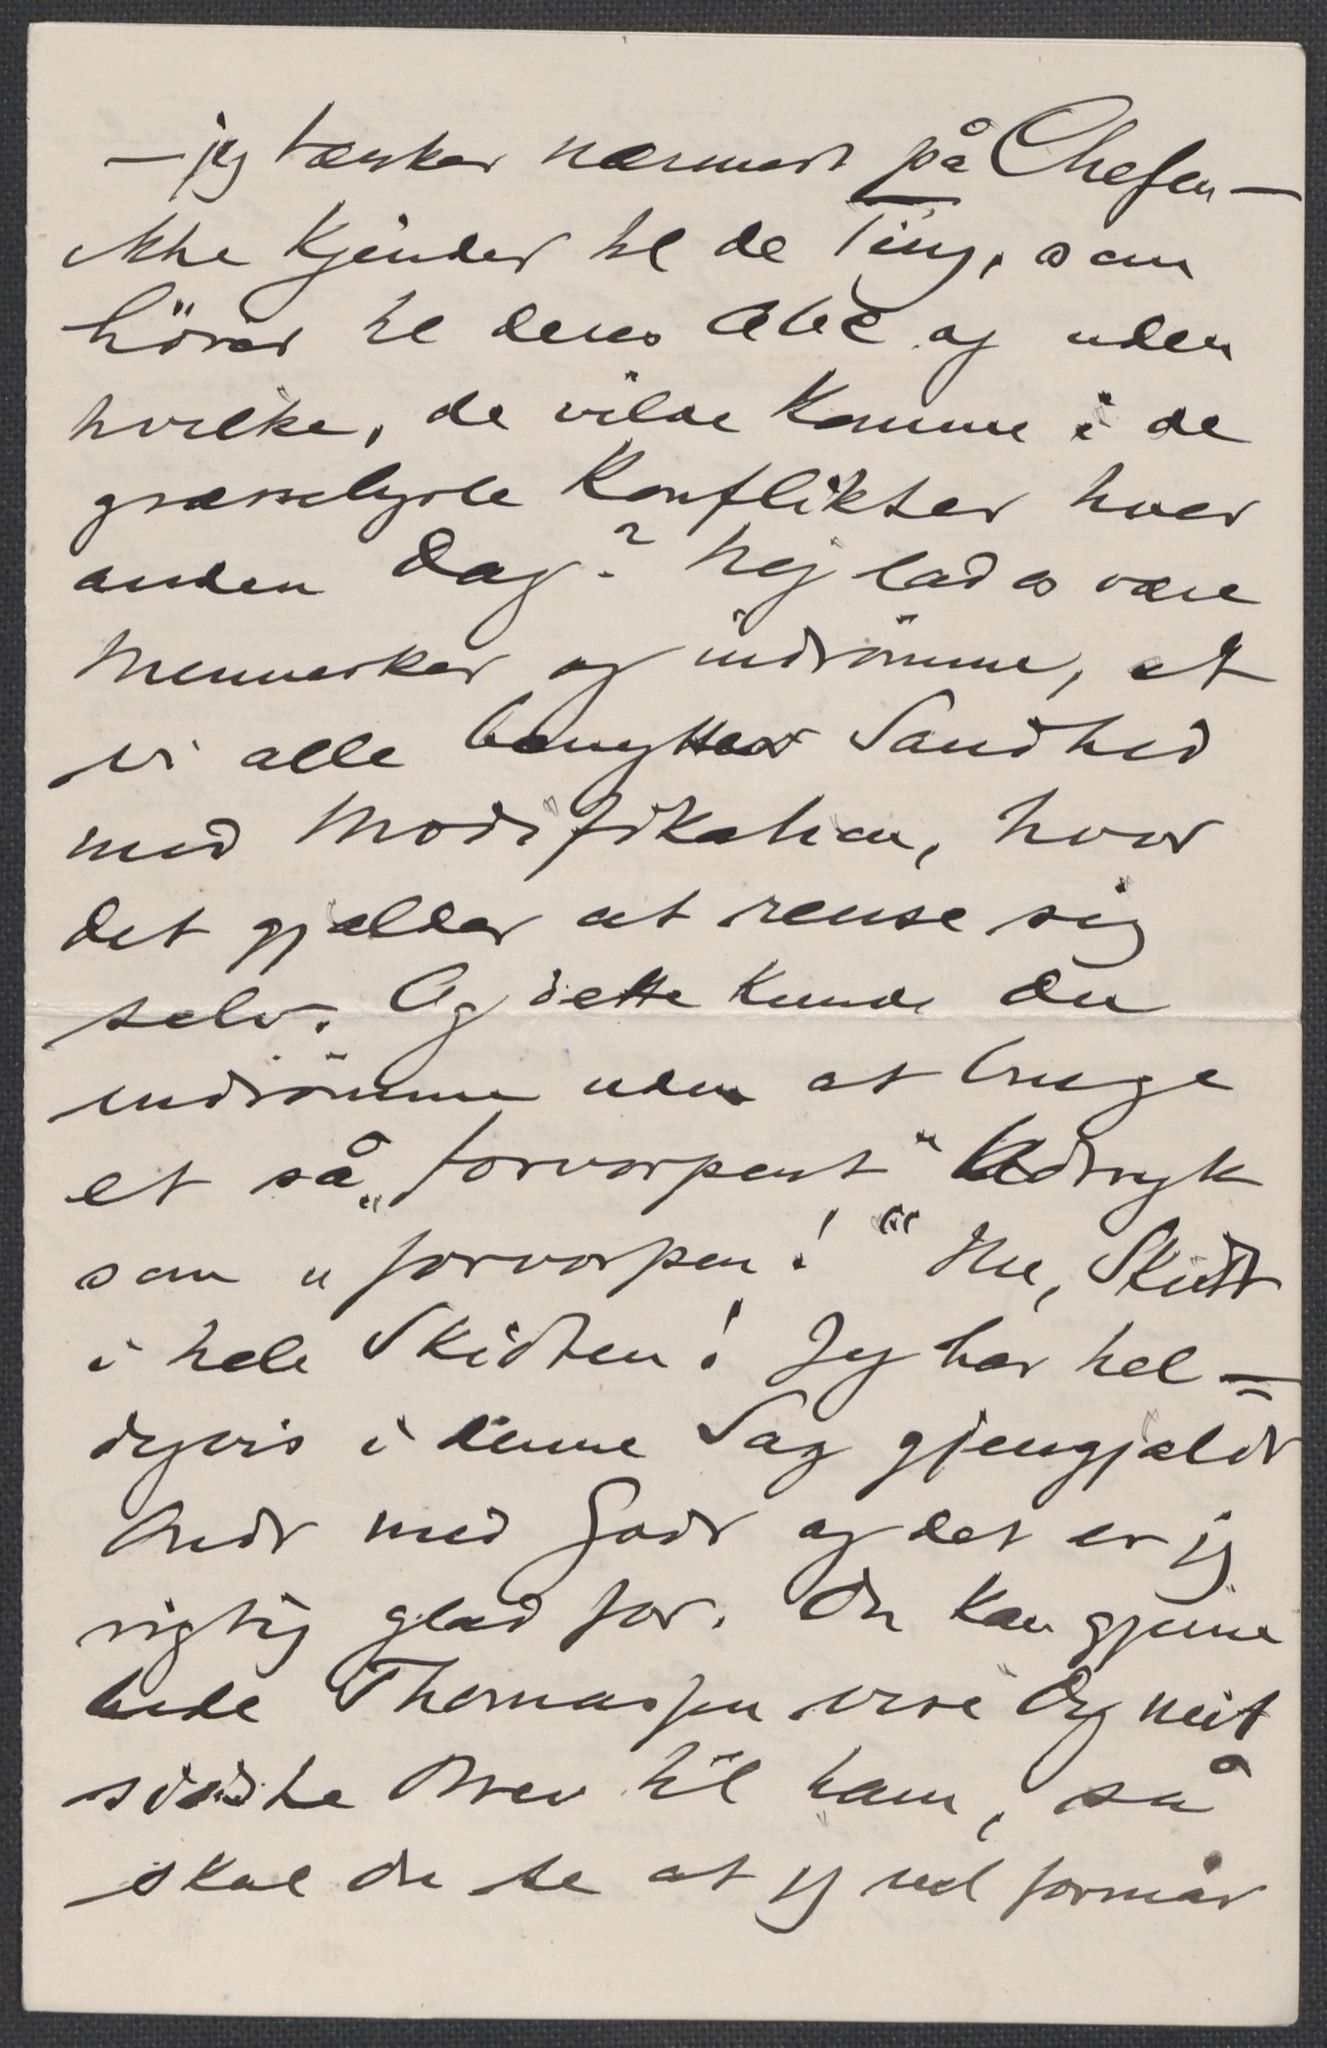 – jeg tænker nærmest på Chefen –
ikke kjender til de Ting, som
hörer til deres Abc og uden
hvilke, de vilde komme i de
græsseligste Konflikter hver
anden Dag? Nej lad os være
Mennesker og indrömme, at
vi alle benytter Sandhed
med Modifikation, hvor
det gjælder at rense sig
selv. Og dette kunde Du
indrömme uden at bruge
et så „forvorpent“ Udtryk
som „forvorpen!“ Nu, Skidt
i hele Skidten! Jeg har hel=
digvis i denne Sag gjengjældt
Ondt med Godt og det er jeg
rigtig glad for. Du kan gjerne
bede Thomassen vise Dig mit
sidste Brev til ham, så
skal Du se at jeg ved formår